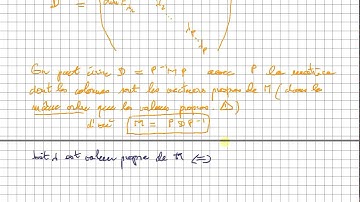 D =
On peut écrire D = P⁻¹MP avec P la matrice
dont les colonnes sont les vecteurs propres de M (dans le
même ordre que les valeurs propres D)
d'où M = PDP⁻¹
soit λ est valeur propre de M (=)